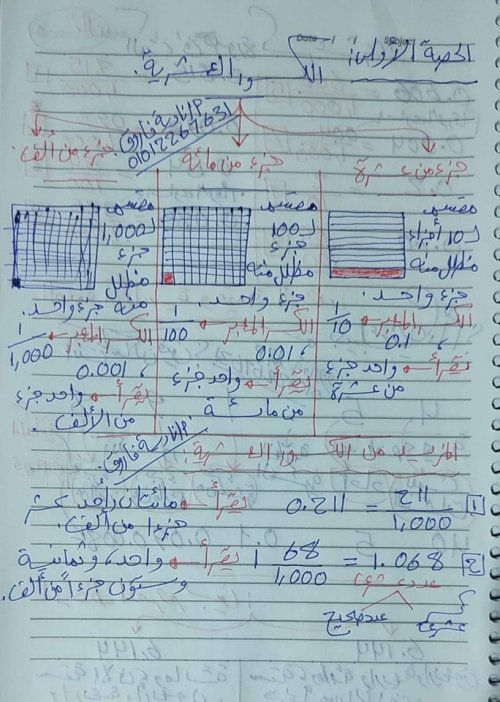 Date / /
Subject
الحصة الأولى:
الكسور العشرية.
م/نادية فاروق
01012267631
جزء من عشرة
جزء من مائة
جزء من ألف
مقسم لـ 10 أجزاء مظلل منه جزء واحد.
الكسر المُعبر 1/10، 0.1
تقرأ واحد جزء من عشرة
مقسم لـ 100 جزء مظلل منه جزء واحد.
الكسر المُعبر 1/100، 0.01
تقرأ واحد جزء من مائة
مقسم لـ 1,000 جزء مظلل منه جزء واحد.
الكسر المُعبر 1/1,000، 0.001
تقرأ واحد جزء من الألف.
م/نادية فاروق
المزيد من الكسور العشرية:
1 211/1,000 = 0.211 تقرأ مائتان وأحد عشر جزءًا من ألف.
2 1.068 = 1 68/1,000 تقرأ واحد، وثمانية وستون جزءًا من ألف.
عدد عشري
عشري
عدد صحيح
6.144
6.144